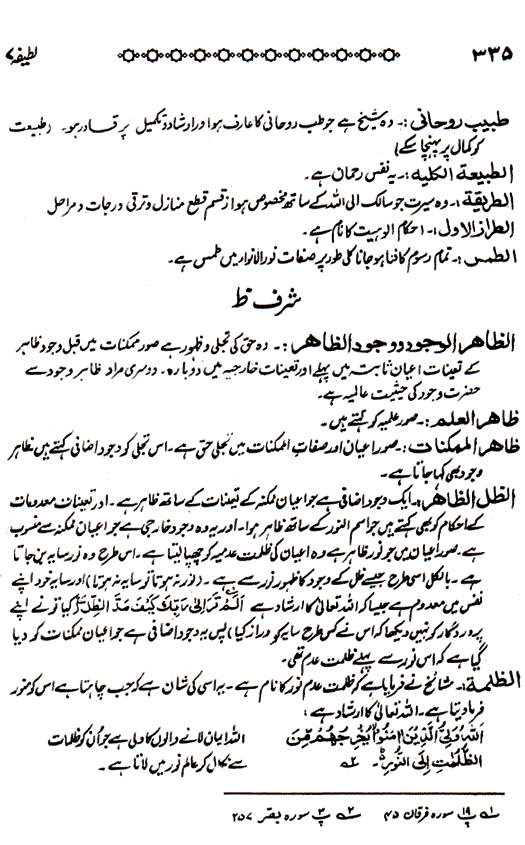 لطیفہ ۷ ۳۳۵
طبیب روحانی :۔ وہ شیخ ہے جو طب روحانی کا عارف ہوا ور ارشاد و تکمیل پر قادر ہو۔ (طبیعت
کو کمال پر پہنچا سکے)
الطبیعۃ الکلیہ :۔ یہ نفس رحمان ہے۔
الطریقۃ :۔ وہ سیرت جو سالک الی اللہ کے ساتھ مخصوص ہو از قسم قطع منازل و ترقی درجات و مراحل
الطراز الاول :۔ احکام الوہیت کا نام ہے۔
الطمس :۔ تمام رسوم کا فنا ہو جانا کلی طور پر صفات نور الانوار میں طمس ہے۔
شرف ظ
الظاہر الوجود و وجود الظاہر :۔ وہ حق کی تجلی و ظہور ہے صور ممکنات میں قبل وجود ظاہر
کے تعینات اعیان ثابتہ میں پہلے اور تعینات خارجیہ میں دوبارہ۔ دوسری مراد ظاہر وجود سے
حضرت وجود کی حیثیت عالیہ ہے۔
ظاہر العلم :۔ صور علمیہ کو کہتے ہیں۔
ظاہر الممکنات :۔ صور اعیان اور صفات الممکنات میں تجلی حق ہے۔ اس تجلی کو وجود اضافی کہتے ہیں ظاہر
وجود بھی کہا جاتا ہے۔
الظل الظاہر :۔ ایک وجود اضافی ہے جو اعیان ممکنہ کے تعینات کے ساتھ ظاہر ہے۔ اور تعینات معدومات
کے احکام کو بھی کہتے ہیں جو اسم النور کے ساتھ ظاہر ہوا۔ اور یہ وہ وجود خارجی ہے جو اعیان ممکنہ سے منسوب
ہے۔ صور اعیان میں جو نور ظاہر ہے وہ اعیان کی ظلمت عدمیہ کو چھپا لیتا ہے۔ اس طرح وہ نور سایہ بن جاتا
ہے۔ بالکل اسی طرح جیسے ظل کے وجود کا ظہور نور سے ہے۔ (نور نہ ہوتا تو سایہ نہ ہوتا) اور سایہ خود اپنے
نفس میں معدوم ہے جیسا کہ اللہ تعالیٰ کا ارشاد ہے اَلَمْ تَرَ اِلٰی رَبِّكَ كَيْفَ مَدَّ الظِّلَّ (کیا تو نے اپنے
پروردگار کو نہیں دیکھا کہ اس نے کس طرح سایہ کو دراز کیا) پس یہ وجود اضافی ہے جو اعیان ممکنات کو دیا
گیا ہے کہ اس نور سے پہلے ظلمت عدم تھی۔
الظلمۃ :۔ مشائخ نے فرمایا ہے کہ ظلمت عدم نور کا نام ہے۔ یہ اسی کی شان ہے کہ جب چاہتا ہے اس کو منور
فرما دیتا ہے۔ اللہ تعالیٰ کا ارشاد ہے :
اَللّٰهُ وَلِيُّ الَّذِيْنَ اٰمَنُوْا يُخْرِجُهُمْ مِّنَ اللہ ایمان لانے والوں کا ولی ہے جو اُن کو ظلمات
الظُّلُمٰتِ اِلَى النُّوْرِ ۔ ۲؎ سے نکال کر عالم نور میں لاتا ہے۔
۱؎ پ ۱۹ سورہ فرقان ۴۵ ۲؎ پ ۳ سورہ بقر ۲۵۷